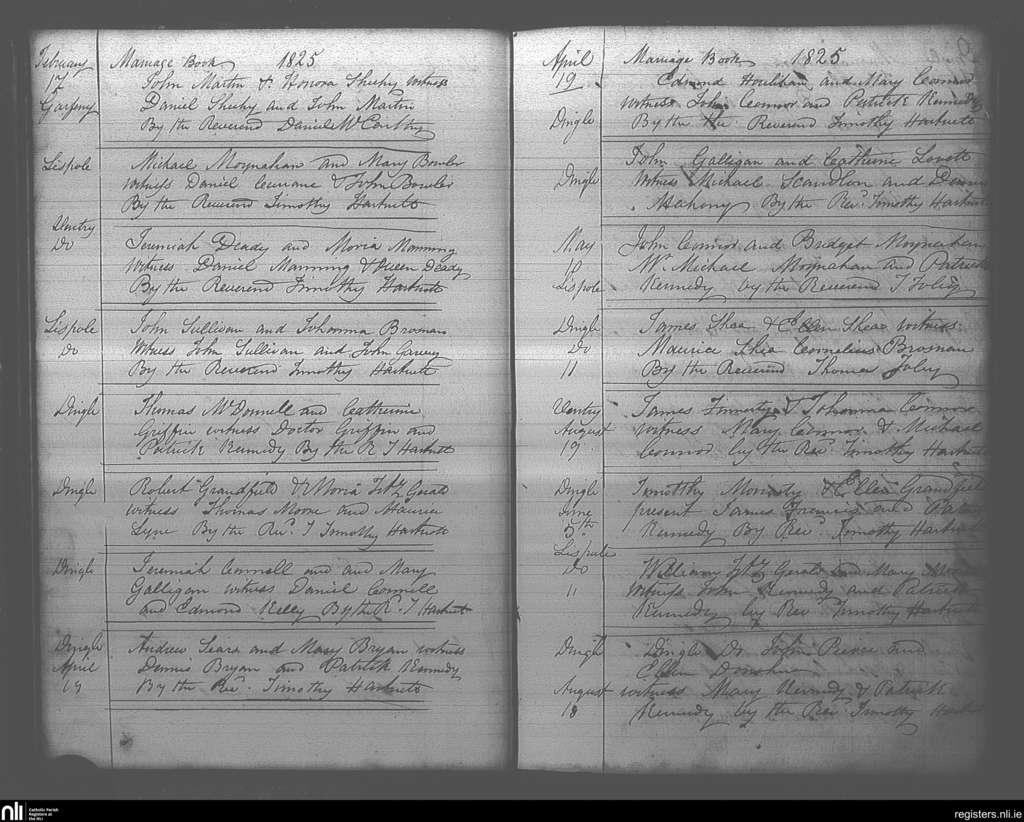 February Marriage Book 1825
17 John Martin & Honora Sheehy witness
Garfiny Daniel Sheehy and John Martin
By the Reverend Daniel McCarthy
Lispole Michael Moynahan and Mary Bowler
witness Daniel Currane & John Bowler
By the Reverend Timothy Hartnett
Ventry
Do Jeremiah Deady and Moria Manning
witness Daniel Manning & Queen Deady
By the Reverend Timothy Hartnett
Lispole John Sullivan and Johanna Brosnan
Do witness John Sullivan and John Garvey
By the Reverend Timothy Hartnett
Dingle Thomas McDonnell and Catherine
Griffin witness Doctor Griffin and
Patrick Kennedy By the R T Hartnett
Dingle Robert Grandfield & Moria Fitz Gerald
witness Thomas Moore and Maurice
Lyne By the Rev. T Timothy Hartnett
Dingle Jeremiah Connell and and Mary
Galligan witness Daniel Connell
and Edmond Kelley By the R. T Hartnett
Dingle Andrew Sears and Mary Bryan witness
April Dennis Bryan and Patrick Kennedy
19 By the Rev. Timothy Hartnett
April Marriage Book 1825
19 Edmond Houlihan and Mary Connor
witness John Connor and Patrick Kennedy
Dingle By the Reverend Timothy Hartnett
John Galligan and Catherine Lovett
Dingle witness Michael Scandlon and Dennis
Mahony By the Rev. Timothy Hartnett
May John Connor and Bridget Moynahan
18 W. Michael Moynahan and Patrick
Lispole Kennedy by the Reverend T Foley
Dingle James Shea & Ellen Shea witness
Do Maurice Shea Cornelius Brosnan
11 By the Reverend Thomas Foley
Ventry James Finnerty & Johanna Connor
August witness Mary Connor & Michael
19 Connor by the Rev. Timothy Hartnett
Dingle Timothy Moriarty & Ellen Grandfield
June present James and
5th Kennedy By Rev. Timothy Hartnett
Lispole
Do William Fitz Gerald and Mary
11 witness John Kennedy and Patrick
Kennedy by Rev. Timothy Hartnett
Dingle Dingle Do John Pierce and
Ellen Donohue
August witness Mary Kennedy & Patrick
18 Kennedy by the Rev. Timothy
nli Catholic Parish Registers at the NLI
registers.nli.ie